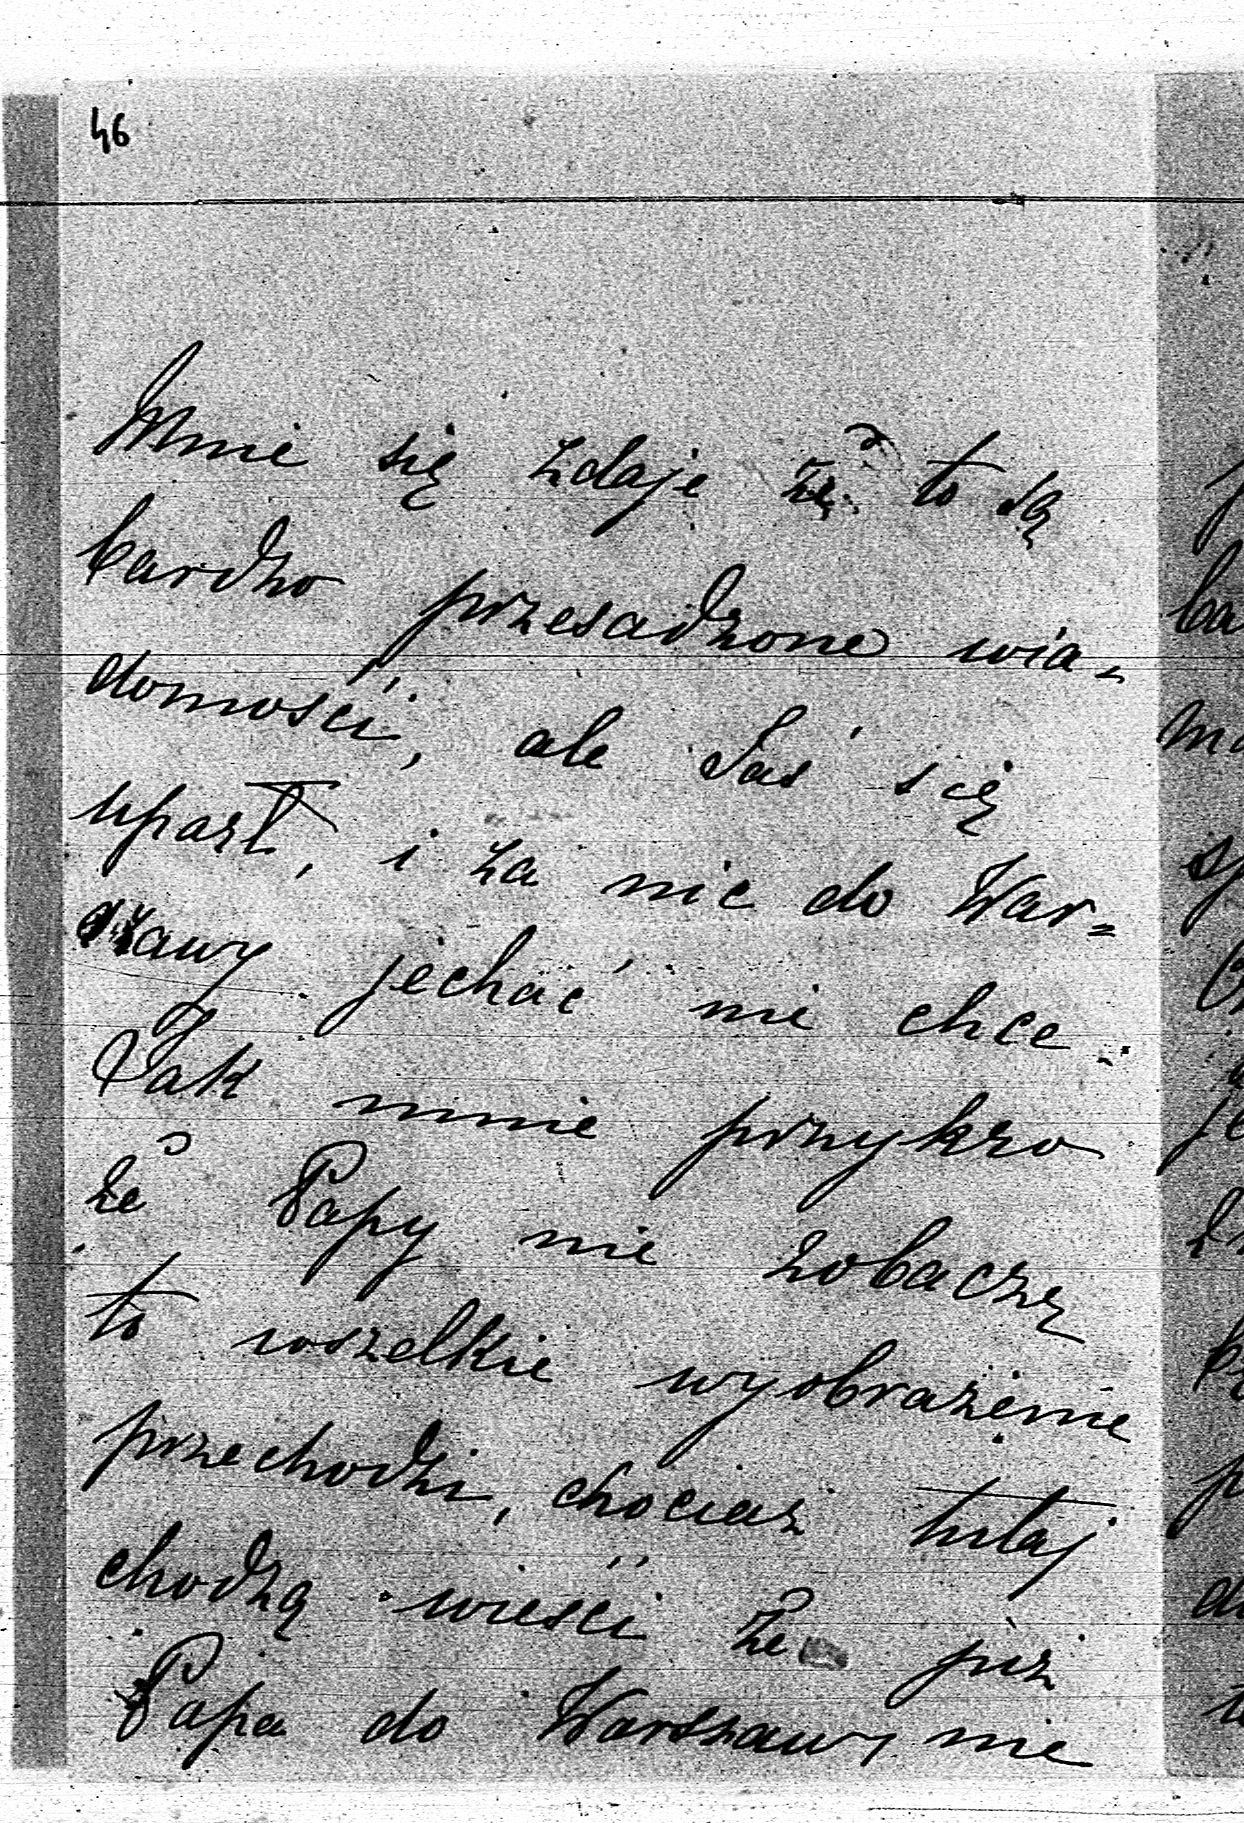 46
Mnie się zdaje że to są
bardzo przesadzone wia-
domości, ale Jaś się
uparł, i za nic do War=
szawy jechać nie chce.
Jak mnie przykro
że Papy nie zobaczę
to wszelkie wyobrażenie
przechodzi, chociaż tutaj
chodzą wieści że już
Papa do Warszawy nie